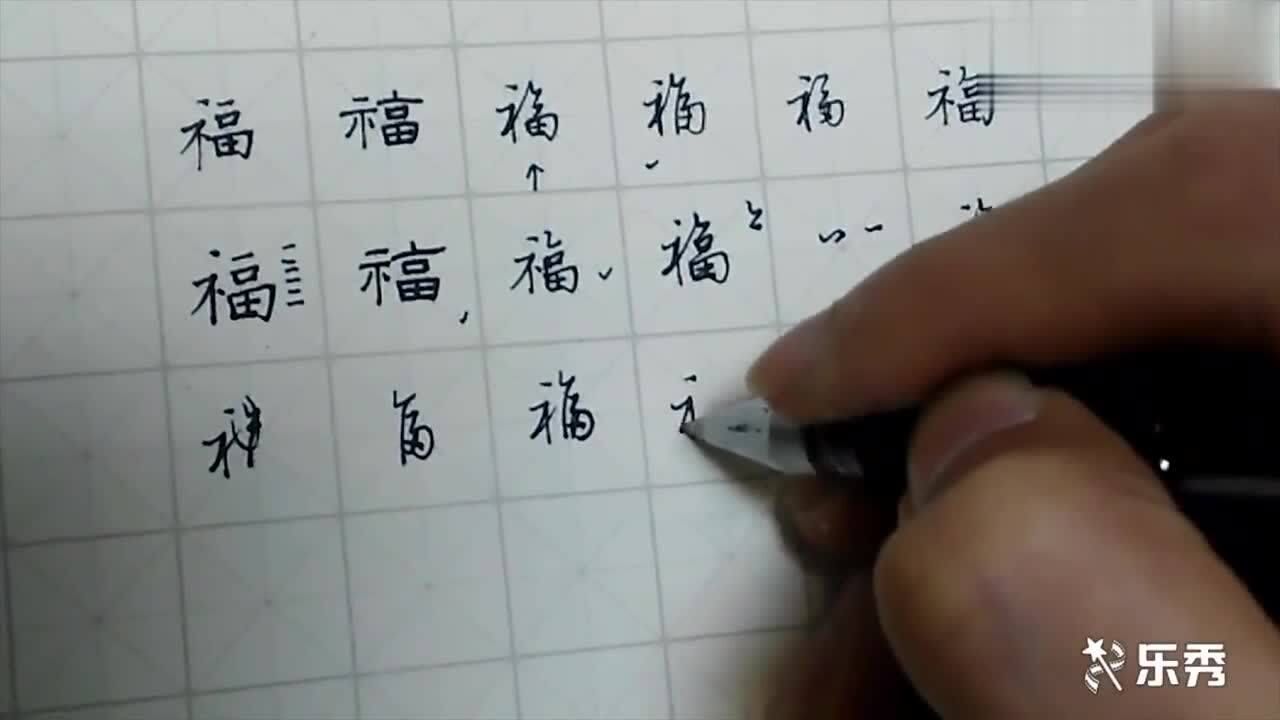 福 福 福 福 福 福
福 福 福 福
福
乐秀